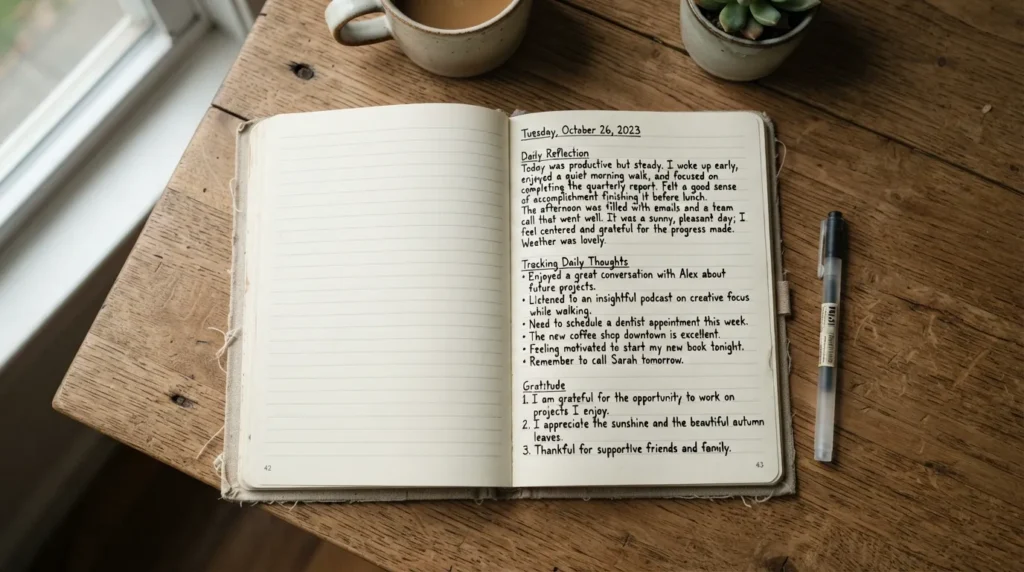 Tuesday, October 26, 2023
Daily Reflection
Today was productive but steady. I woke up early,
enjoyed a quiet morning walk, and focused on
completing the quarterly report. Felt a good sense
of accomplishment finishing it before lunch.
The afternoon was filled with emails and a team
call that went well. It was a sunny, pleasant day; I
feel centered and grateful for the progress made.
Weather was lovely.
Tracking Daily Thoughts
• Enjoyed a great conversation with Alex about
future projects.
• Listened to an insightful podcast on creative focus
while walking.
• Need to schedule a dentist appointment this week.
• The new coffee shop downtown is excellent.
• Feeling motivated to start my new book tonight.
• Remember to call Sarah tomorrow.
Gratitude
1. I am grateful for the opportunity to work on
projects I enjoy.
2. I appreciate the sunshine and the beautiful autumn
leaves.
3. Thankful for supportive friends and family.
42
43